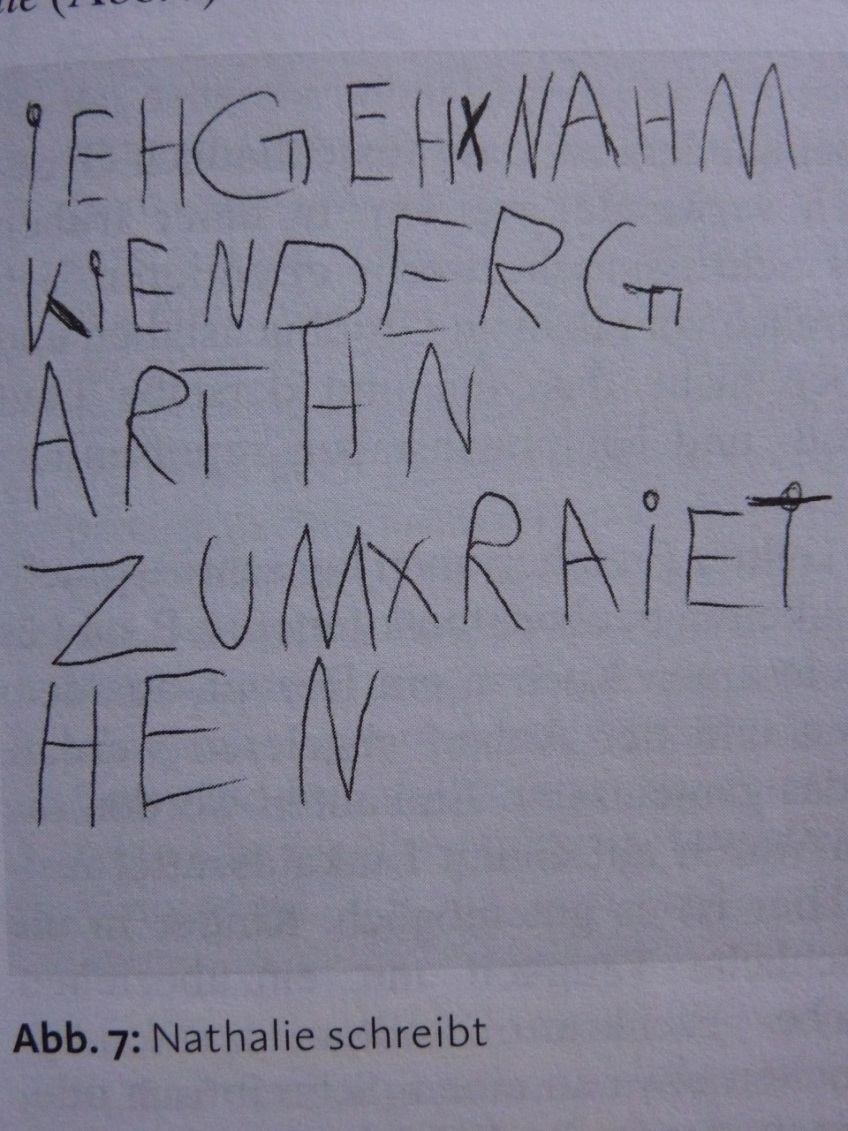 iEHGEHXNAHM
KiENDERG
ARTHN
ZUMXRAiET
HEN
Abb. 7: Nathalie schreibt